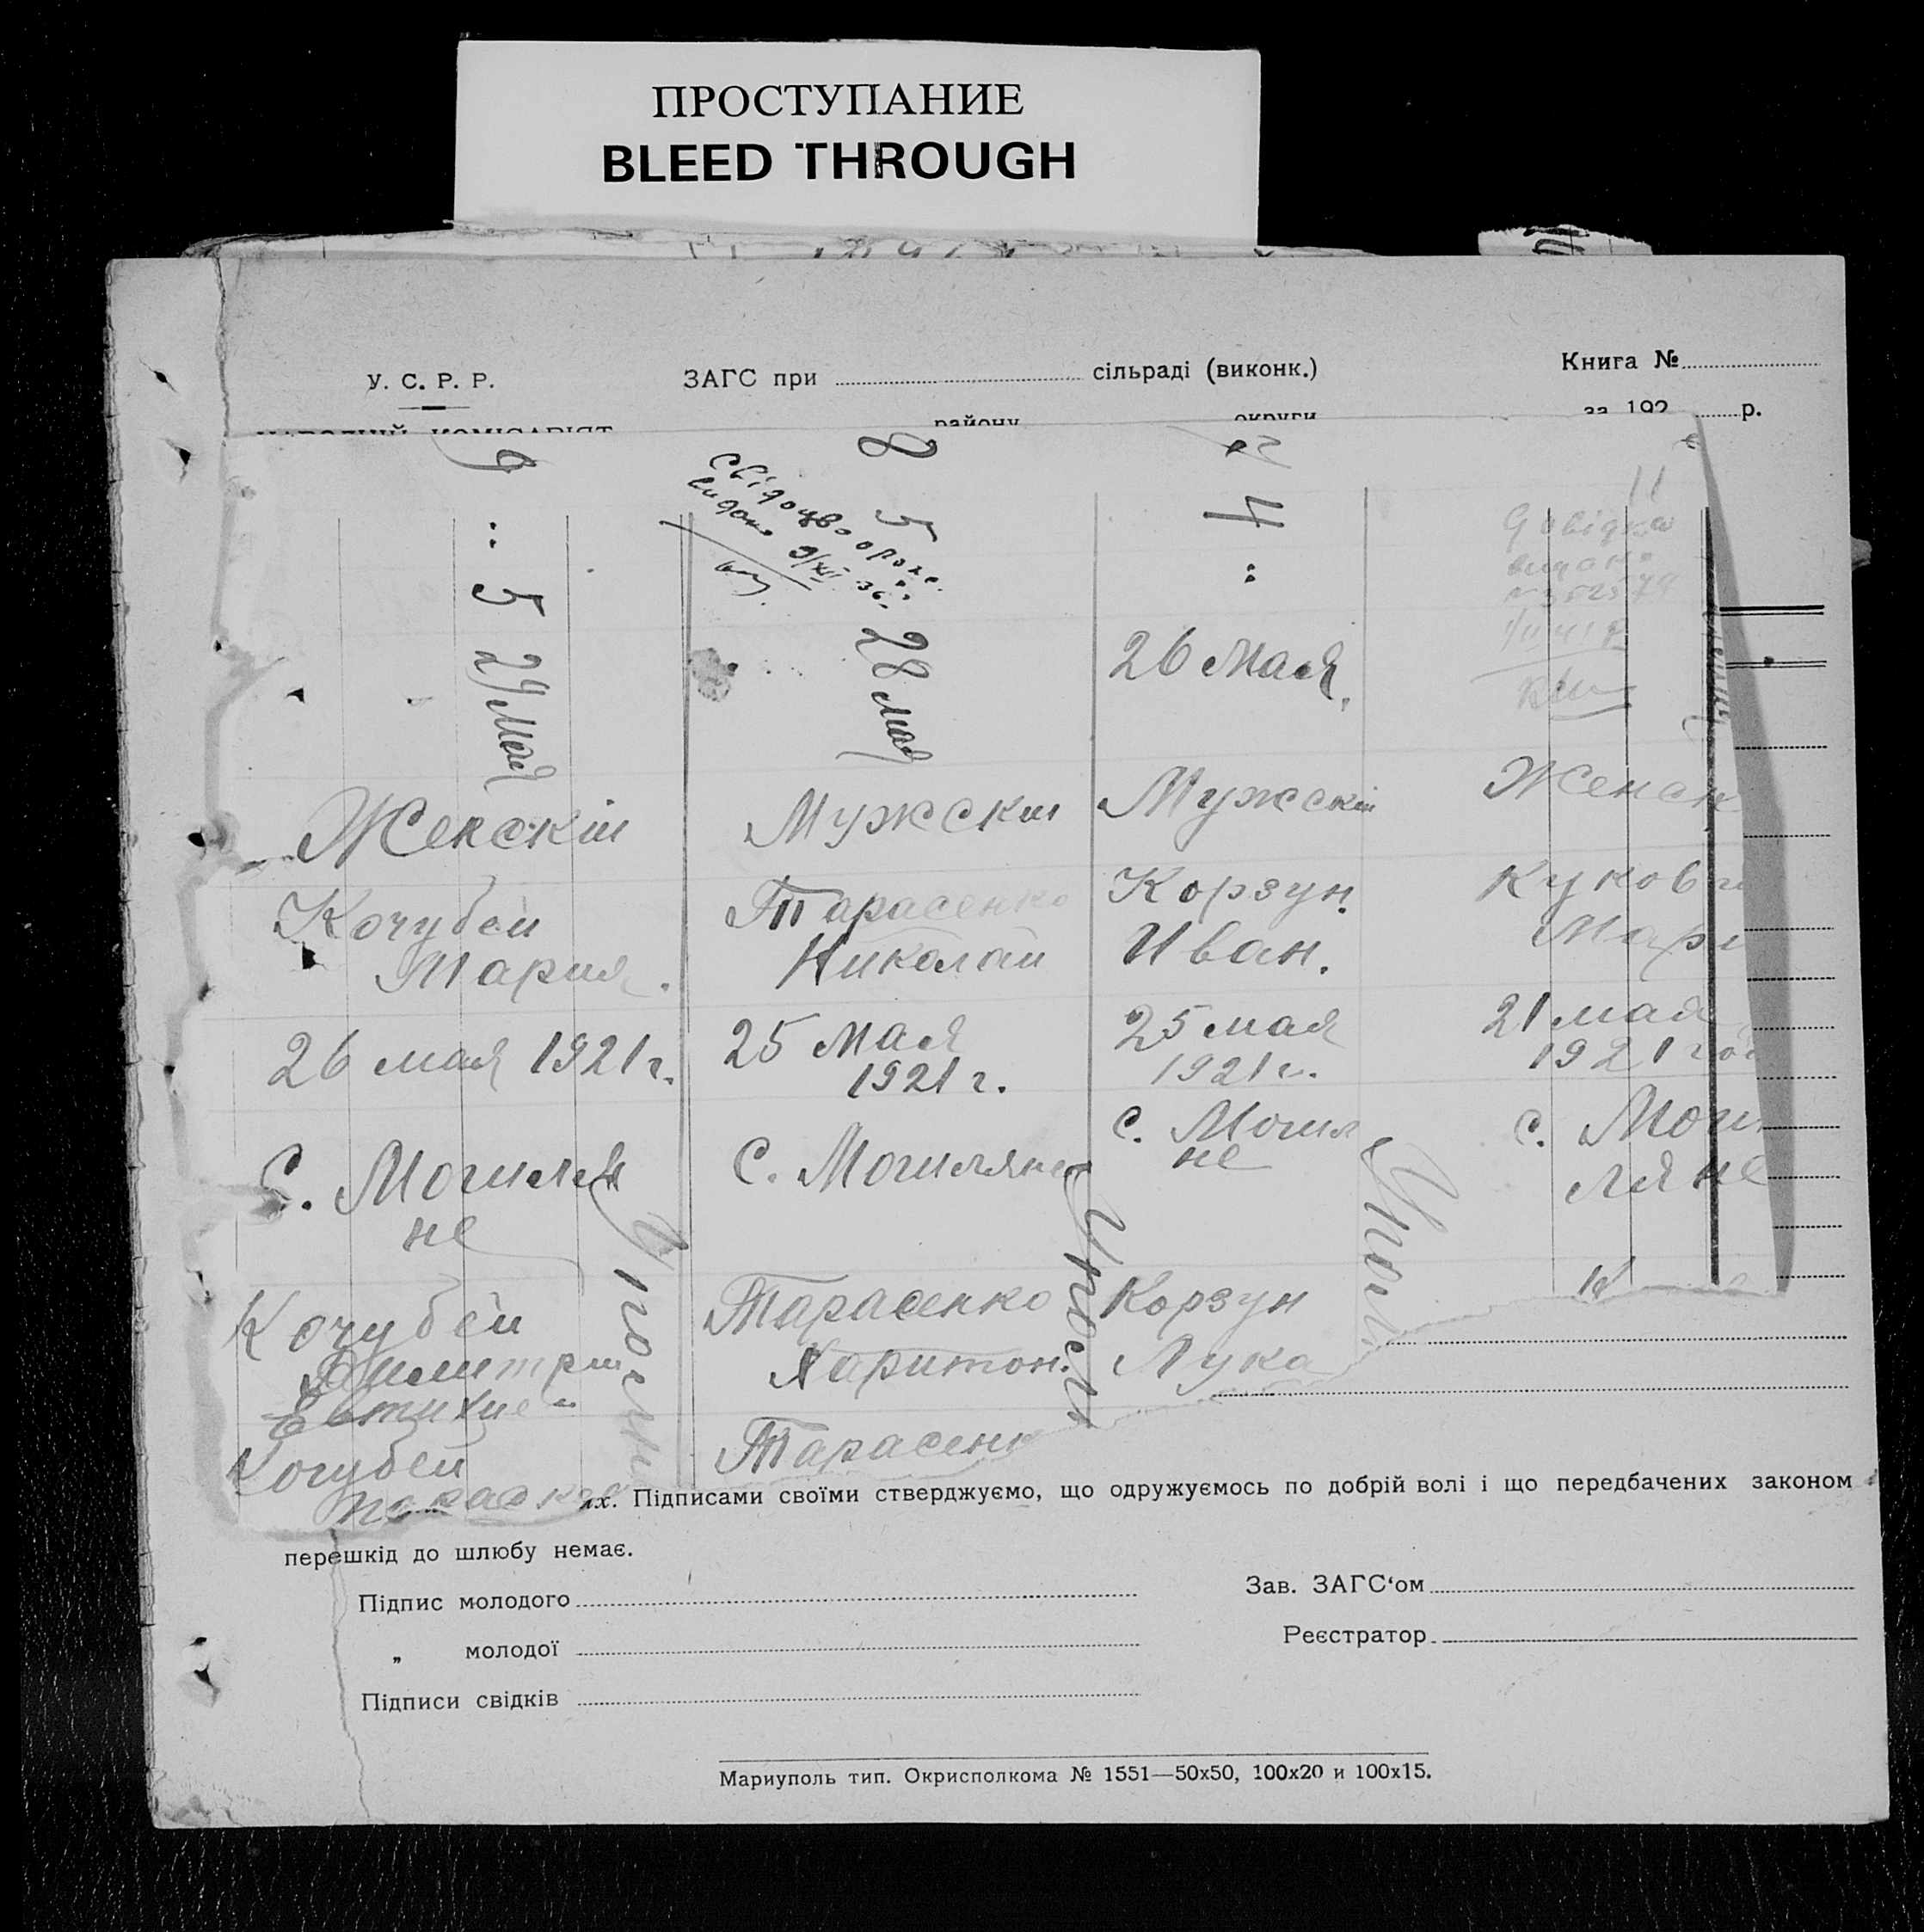 ПРОСТУПАНИЕ
BLEED THROUGH
У. С. Р. Р.
ЗАГС при сільраді (виконк.)
Книга №
району округи за 192 р.
9
5
29 Мая
Женскій
Кочубей
Мария.
26 мая 1921 г.
С. Могиля
не
Кочубей
Димитрий
Евтихие
Кочубей
8
5
Свідоцво о рож.
видано 9/XII 36.
28 мая
Мужский
Тарасенко
Николай
25 Мая
1921 г.
С. Могиляне
Тарасенко
Харитон.
Тарасенк
4
26 Мая
Мужскій
Корзун
Иван.
25 мая
1921 г.
С. Могиля
не
Корзун
Лука
11
Довідка
видана
Женск
Мари
21 мая
1921 год
С. Моги
ляне
их. Підписами своїми стверджуємо, що одружуємось по добрій волі і що передбачених законом
перешкід до шлюбу немає.
Підпис молодого
Зав. ЗАГС‘ом
„ молодої
Реєстратор
Підписи свідків
Мариуполь тип. Окрисполкома № 1551—50х50, 100х20 и 100х15.